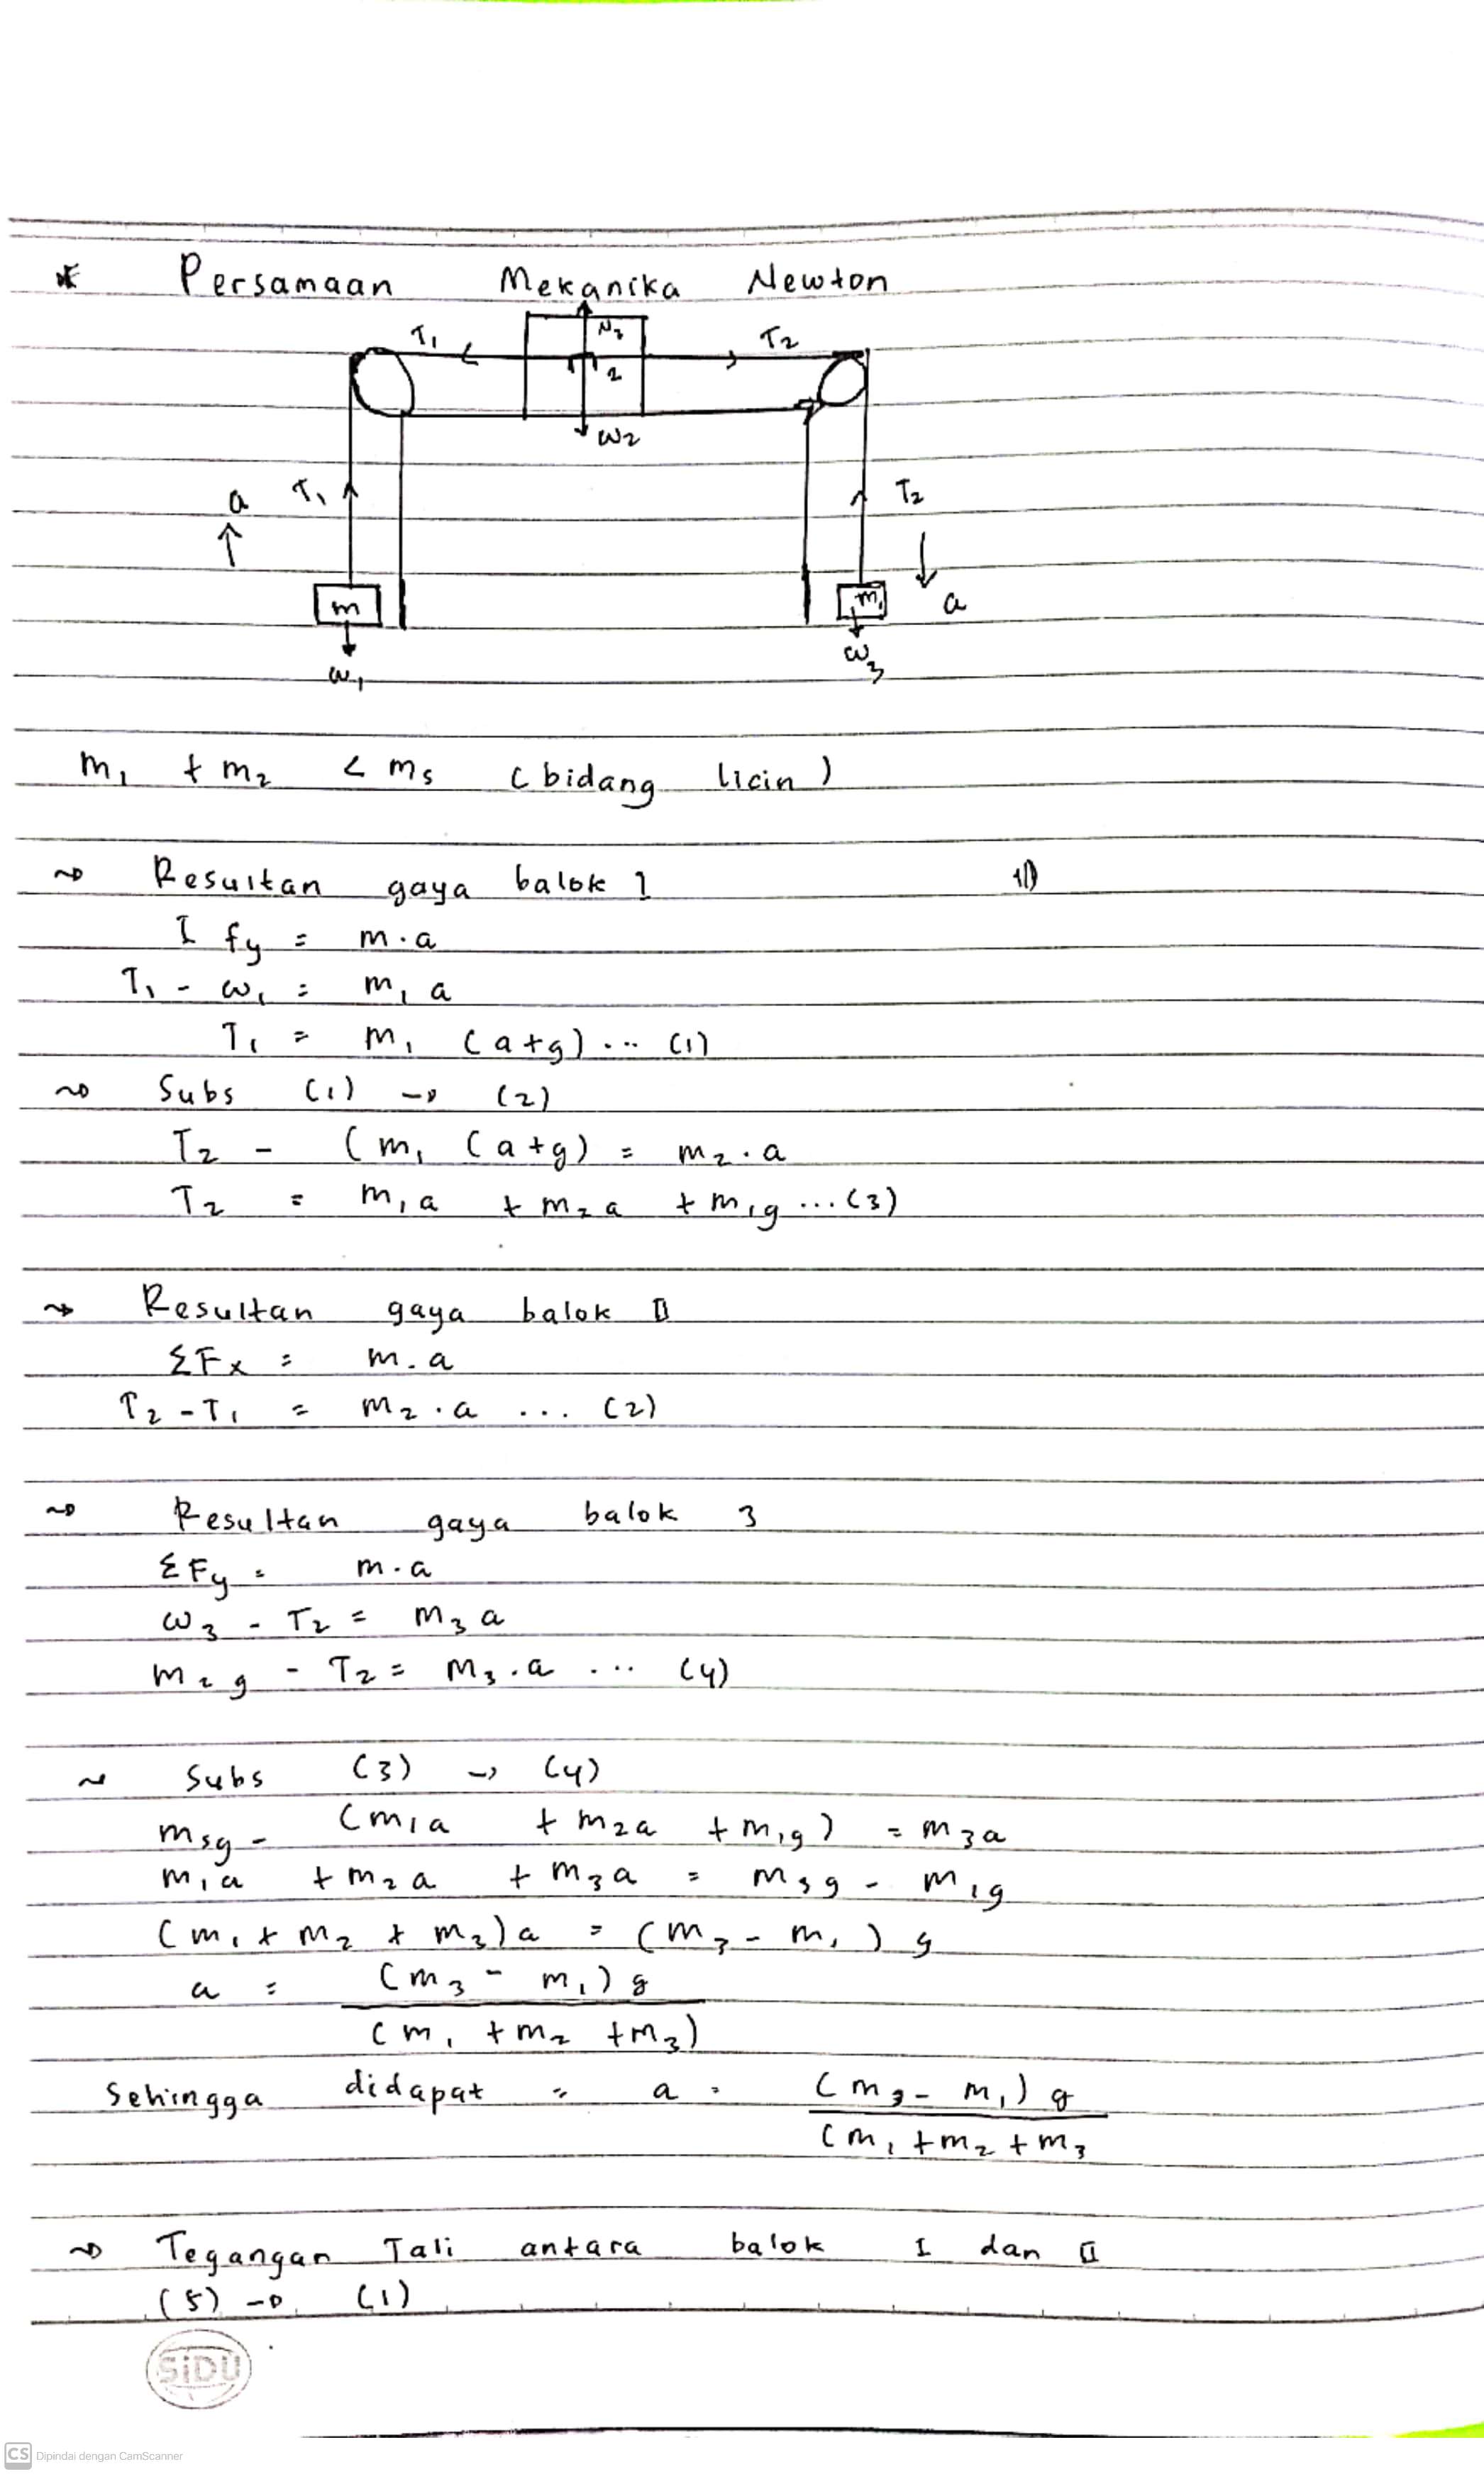 * Persamaan Mekanika Newton
T₁ N₂ T₂
2
W₂
a T₁ T₂
m m₁ a
W₁ W₃
m₁ + m₂ < ms (bidang licin)
~> Resultan gaya balok 1
I fy = m.a
T₁ - w₁ = m₁ a
T₁ = m₁ (a+g) ... (1)
~> Subs (1) → (2)
T₂ - (m₁ (a+g) = m₂.a
T₂ = m₁a + m₂a + m₁g ... (3)
~> Resultan gaya balok II
ΣFx = m.a
T₂ - T₁ = m₂.a ... (2)
~> Resultan gaya balok 3
ΣFy = m.a
w₃ - T₂ = m₃ a
m₂g - T₂ = m₃.a ... (4)
~ Subs (3) → (4)
msg - (m₁a + m₂a + m₁g) = m₃a
m₁a + m₂a + m₃a = m₃g - m₁g
(m₁ + m₂ + m₃)a = (m₃ - m₁) g
a = (m₃ - m₁) g
(m₁ + m₂ + m₃)
Sehingga didapat = a = (m₃ - m₁) g
(m₁ + m₂ + m₃
~> Tegangan Tali antara balok I dan II
(5) → (1)
SiDU
CS Dipindai dengan CamScanner